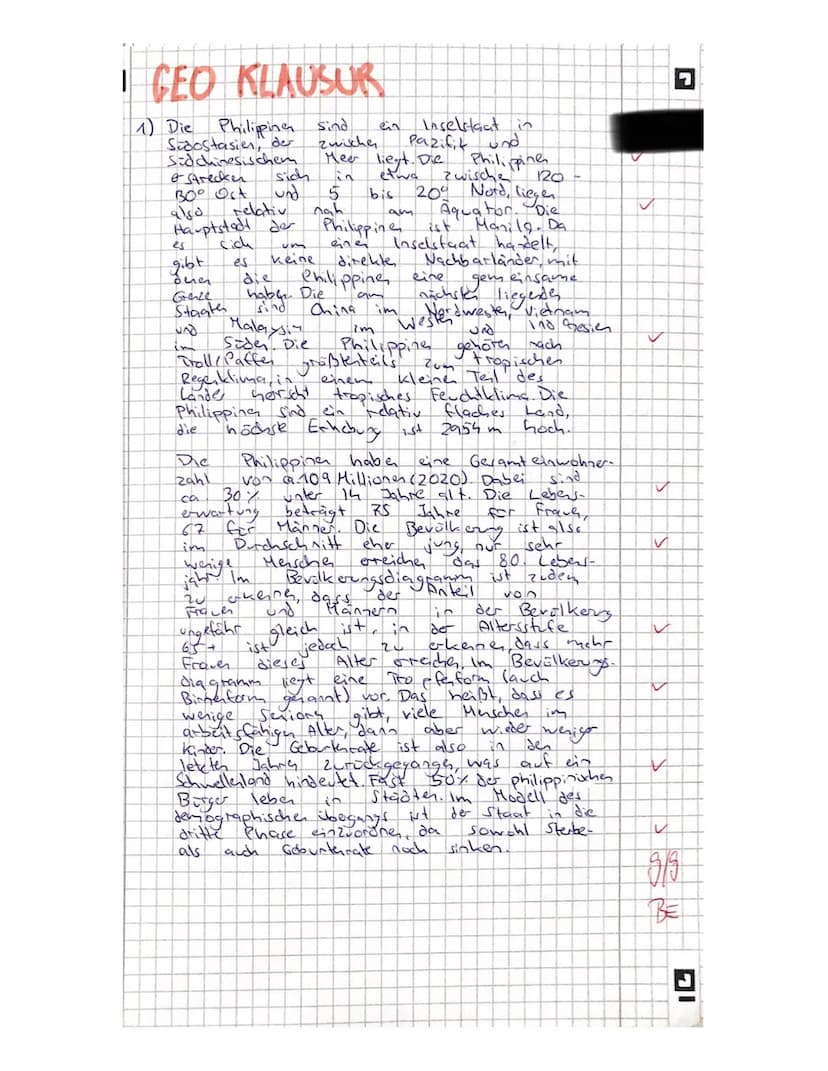 GEO KLAUSUR
1) Die Philippinen sind ein Inselstaat in
Südostasien, der zwischen Pazifik und
Südchinesischem Meer liegt. Die Philippinen
erstrecken sich in etwa zwischen 120 -
130° Ost und 5 bis 20° Nord, liegen
also relativ nah am Äquator. Die
Hauptstadt der Philippinen ist Manila. Da
es sich um einen Inselstaat handelt,
gibt es keine direkten Nachbarländer, mit
denen die Philippinen eine gemeinsame
Grenze haben. Die am nächsten liegenden
Staaten sind China im Nordwesten, Vietnam
und Malaysia im Westen und Indonesien
im Süden. Die Philippinen gehören nach
Troll/Paffen größtenteils zum tropischen
Regenklima, in einem kleinen Teil des
Landes herrscht tropisches Feuchtklima. Die
Philippinen sind ein relativ flaches Land,
die höchste Erhebung ist 2954 m hoch.
Die Philippinen haben eine Gesamteinwohner-
zahl von ca. 109 Millionen (2020). Dabei sind
ca. 30% unter 14 Jahre alt. Die Lebens-
erwartung beträgt 75 Jahre für Frauen,
67 für Männer. Die Bevölkerung ist also
im Durchschnitt eher jung, nur sehr
wenige Menschen erreichen das 80. Lebens-
jahr. Im Bevölkerungsdiagramm ist zudem
zu erkennen, dass der Anteil von
Frauen und Männern in der Bevölkerung
ungefähr gleich ist, in der Altersstufe
65+ ist jedoch zu erkennen, dass mehr
Frauen dieses Alter erreichen. Im Bevölkerungs-
diagramm liegt eine Tropfenform (auch
Birnenform genannt) vor. Das heißt, dass es
wenige Senioren gibt, viele Menschen im
arbeitsfähigen Alter, dann aber wieder weniger
Kinder. Die Geburtenrate ist also in den
letzten Jahren zurückgegangen, was auf ein
Schwellenland hindeutet. Fast 50% der philippinischen
Bürger leben in Städten. Im Modell des
demographischen Übergangs ist der Staat in die
dritte Phase einzuordnen, da sowohl Sterbe-
als auch Geburtenrate noch sinken.
9/9
BE